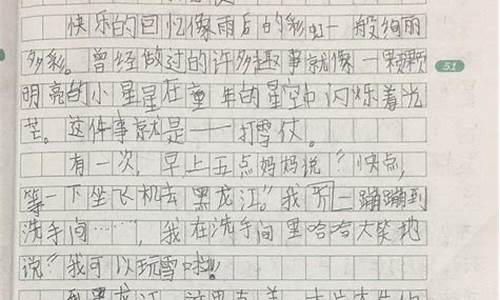 快乐的回忆像雨后的彩虹一般绚丽
多彩。曾经做过的许多趣事就像一颗颗
51
明亮的小星星在童年的星空中闪烁着光
芒。这件事就是——打雪仗。
有一次，早上五点妈妈说“快点，
等一下坐飞机去黑龙江。”我一蹦蹦到
洗手间……，我在洗手间里哈哈大笑地
说“我可以玩雪啦！”